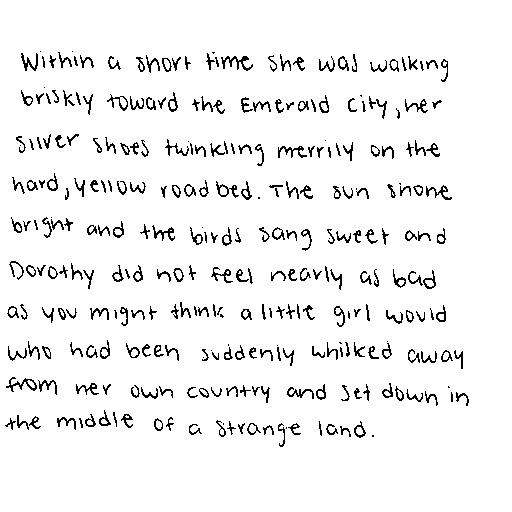 Within a short time she was walking
briskly toward the Emerald City, her
silver shoes twinkling merrily on the
hard, yellow roadbed. The sun shone
bright and the birds sang sweet and
Dorothy did not feel nearly as bad
as you might think a little girl would
who had been suddenly whisked away
from her own country and set down in
the middle of a strange land.